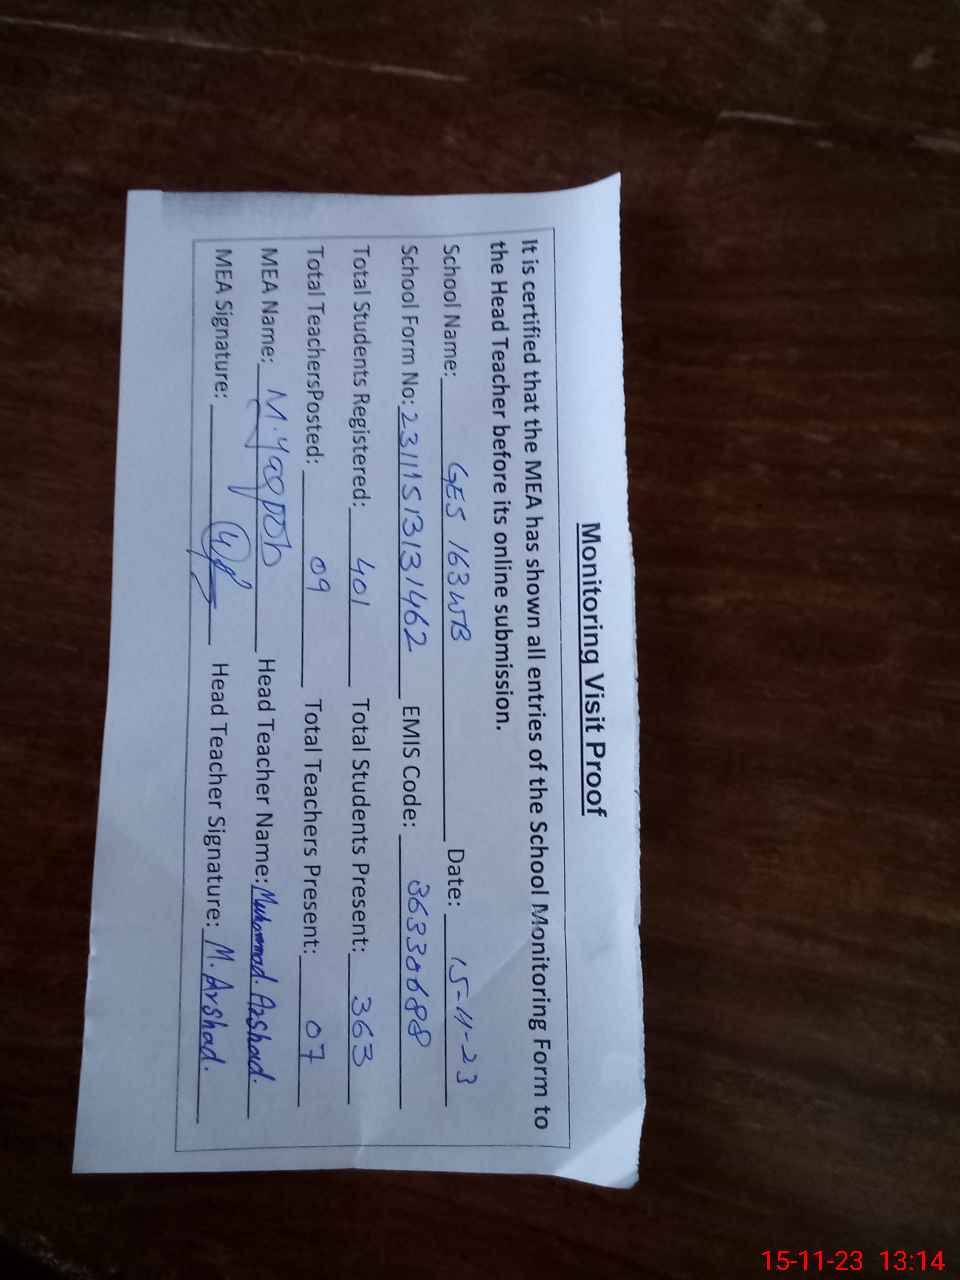 Monitoring Visit Proof
It is certified that the MEA has shown all entries of the School Monitoring Form to
the Head Teacher before its online submission.
School Name: GES 163WB Date: 15-11-23
School Form No: 23111513131462 EMIS Code: 36330688
Total Students Registered: 401 Total Students Present: 363
Total TeachersPosted: 09 Total Teachers Present: 07
MEA Name: M. Yaqoob Head Teacher Name: Muhammad. Arshad.
MEA Signature: Head Teacher Signature: M. Arshad.
15-11-23 13:14